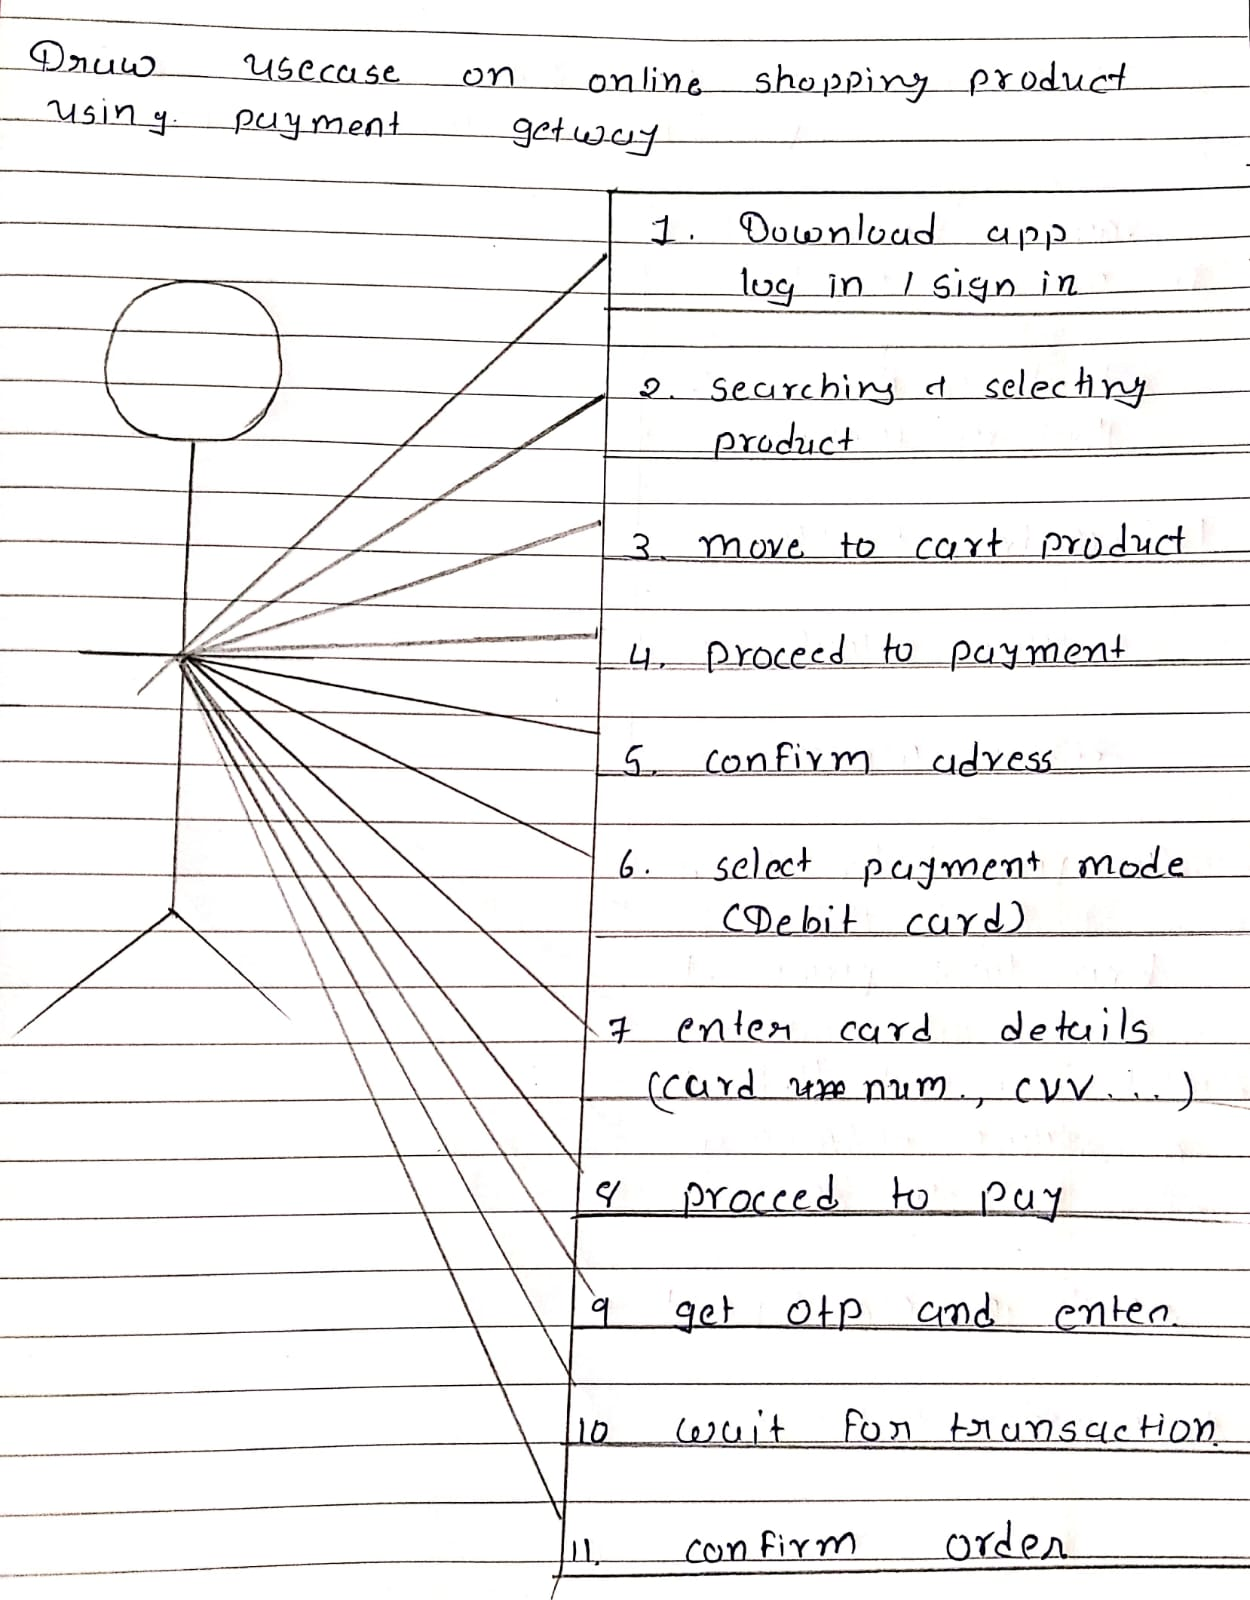 Draw usecase on online shopping product
using payment getway
1. Download app
log in / sign in
2. searching & selecting
product
3. move to cart product
4. proceed to payment
5. confirm adress
6. select payment mode
(Debit card)
7 enter card details
(card num., CVV...)
8 proceed to pay
9 get otp and enter.
10 wait for transaction.
11. confirm order